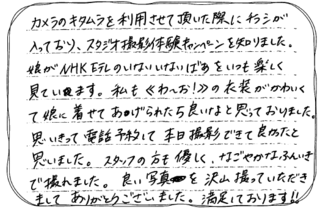 カメラのキタムラを利用させて頂いた際にチラシが
入っており、スタジオ撮影体験キャンペーンを知りました。
娘がNHKEテレのいないいないばあをいつも楽しく
見ています。私も《わ〜お!》の衣装がかわいく
て娘に着せてあげられたら良いなと思っておりました。
思いきって電話予約して本日撮影できて良かったと
思いました。スタッフの方も優しく、なごやかなふんいき
で撮れました。良い写真を沢山撮っていただき
まして ありがとうございました。満足しております!!